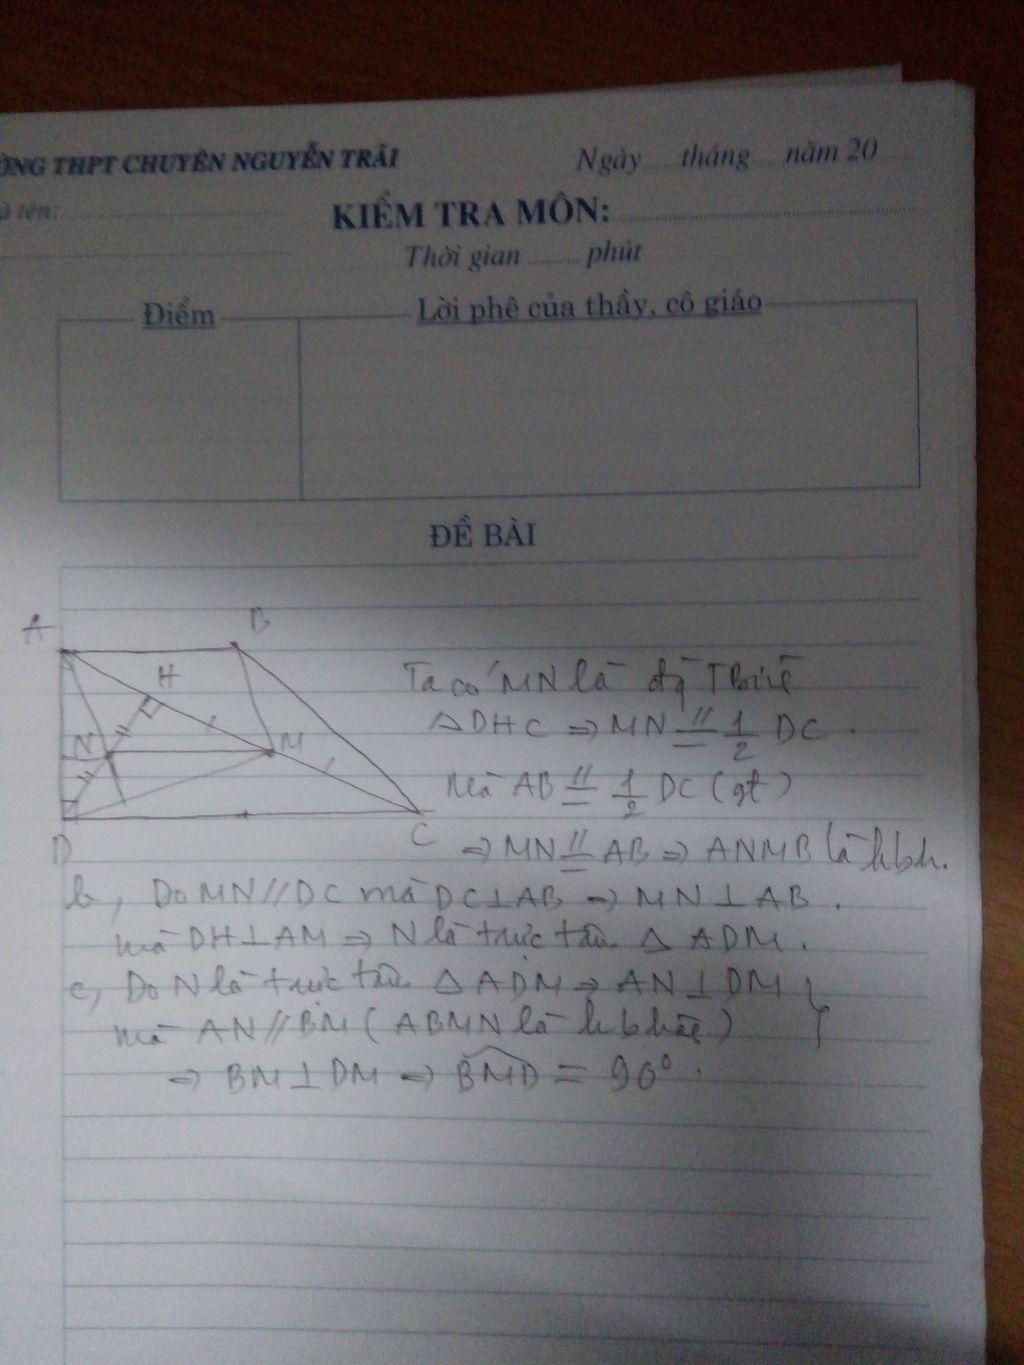 ỜNG THPT CHUYÊN NGUYỄN TRÃI
Ngày tháng năm 20
à tên:
KIỂM TRA MÔN:
Thời gian phút
Điểm
Lời phê của thầy, cô giáo
ĐỀ BÀI
A
B
H
N
M
D
C
Ta có MN là
△DHC ⇒ MN // = 1/2 DC.
Mà AB // = 1/2 DC (gt)
⇒ MN // = AB ⇒ ANMB là hbh.
b, Do MN // DC mà DC ⊥ AB ⇒ MN ⊥ AB.
mà DH ⊥ AM ⇒ N là trực tâm △ ADM.
c, Do N là trực tâm △ ADM ⇒ AN ⊥ DM }
mà AN // BM (ABMN là)
⇒ BM ⊥ DM ⇒ BMD = 90°.